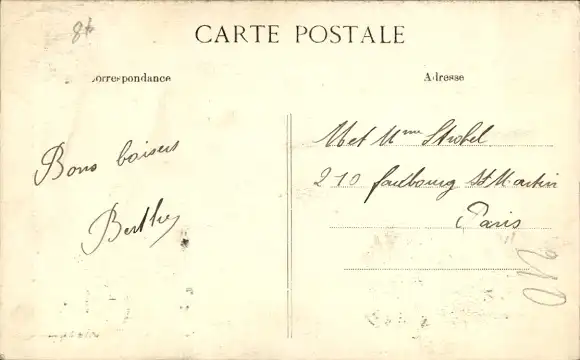 CARTE POSTALE
Correspondance
Adresse
Bons baisers
Berthe
M et Mme Strobel
210 faubourg St Martin
Paris